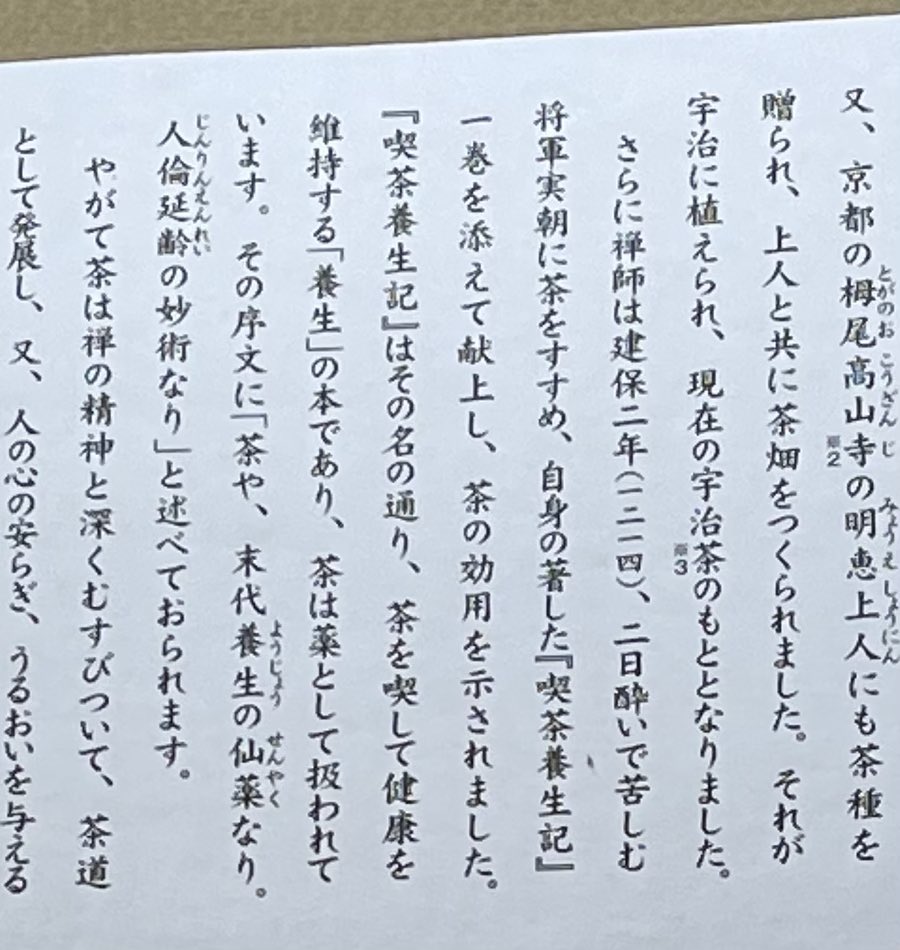 又、京都の栂尾高山寺の明恵上人にも茶種を
とがのおこうざんじ
みょうえしょうにん
※2
贈られ、上人と共に茶畑をつくられました。それが
宇治に植えられ、現在の宇治茶のもととなりました。
※3
さらに禅師は建保二年(一二一四)、二日酔いで苦しむ
将軍実朝に茶をすすめ、自身の著した『喫茶養生記』
一巻を添えて献上し、茶の効用を示されました。
『喫茶養生記』はその名の通り、茶を喫して健康を
維持する「養生」の本であり、茶は薬として扱われて
います。その序文に「茶や、末代養生の仙薬なり。
ようじょう
せんやく
人倫延齢の妙術なり」と述べておられます。
じんりんえんれい
やがて茶は禅の精神と深くむすびついて、茶道
として発展し、又、人の心の安らぎ、うるおいを与える